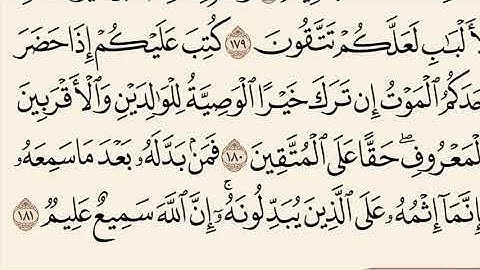 لْأَلْبَٰبِ لَعَلَّكُمْ تَتَّقُونَ ١٧٩ كُتِبَ عَلَيْكُمْ إِذَا حَضَرَ
حَدَكُمُ ٱلْمَوْتُ إِن تَرَكَ خَيْرًا ٱلْوَصِيَّةُ لِلْوَٰلِدَيْنِ وَٱلْأَقْرَبِينَ
لْمَعْرُوفِ ۖ حَقًّا عَلَى ٱلْمُتَّقِينَ ١٨٠ فَمَنۢ بَدَّلَهُۥ بَعْدَ مَا سَمِعَهُۥ
إِنَّمَآ إِثْمُهُۥ عَلَى ٱلَّذِينَ يُبَدِّلُونَهُۥٓ ۚ إِنَّ ٱللَّهَ سَمِيعٌ عَلِيمٌ ١٨١